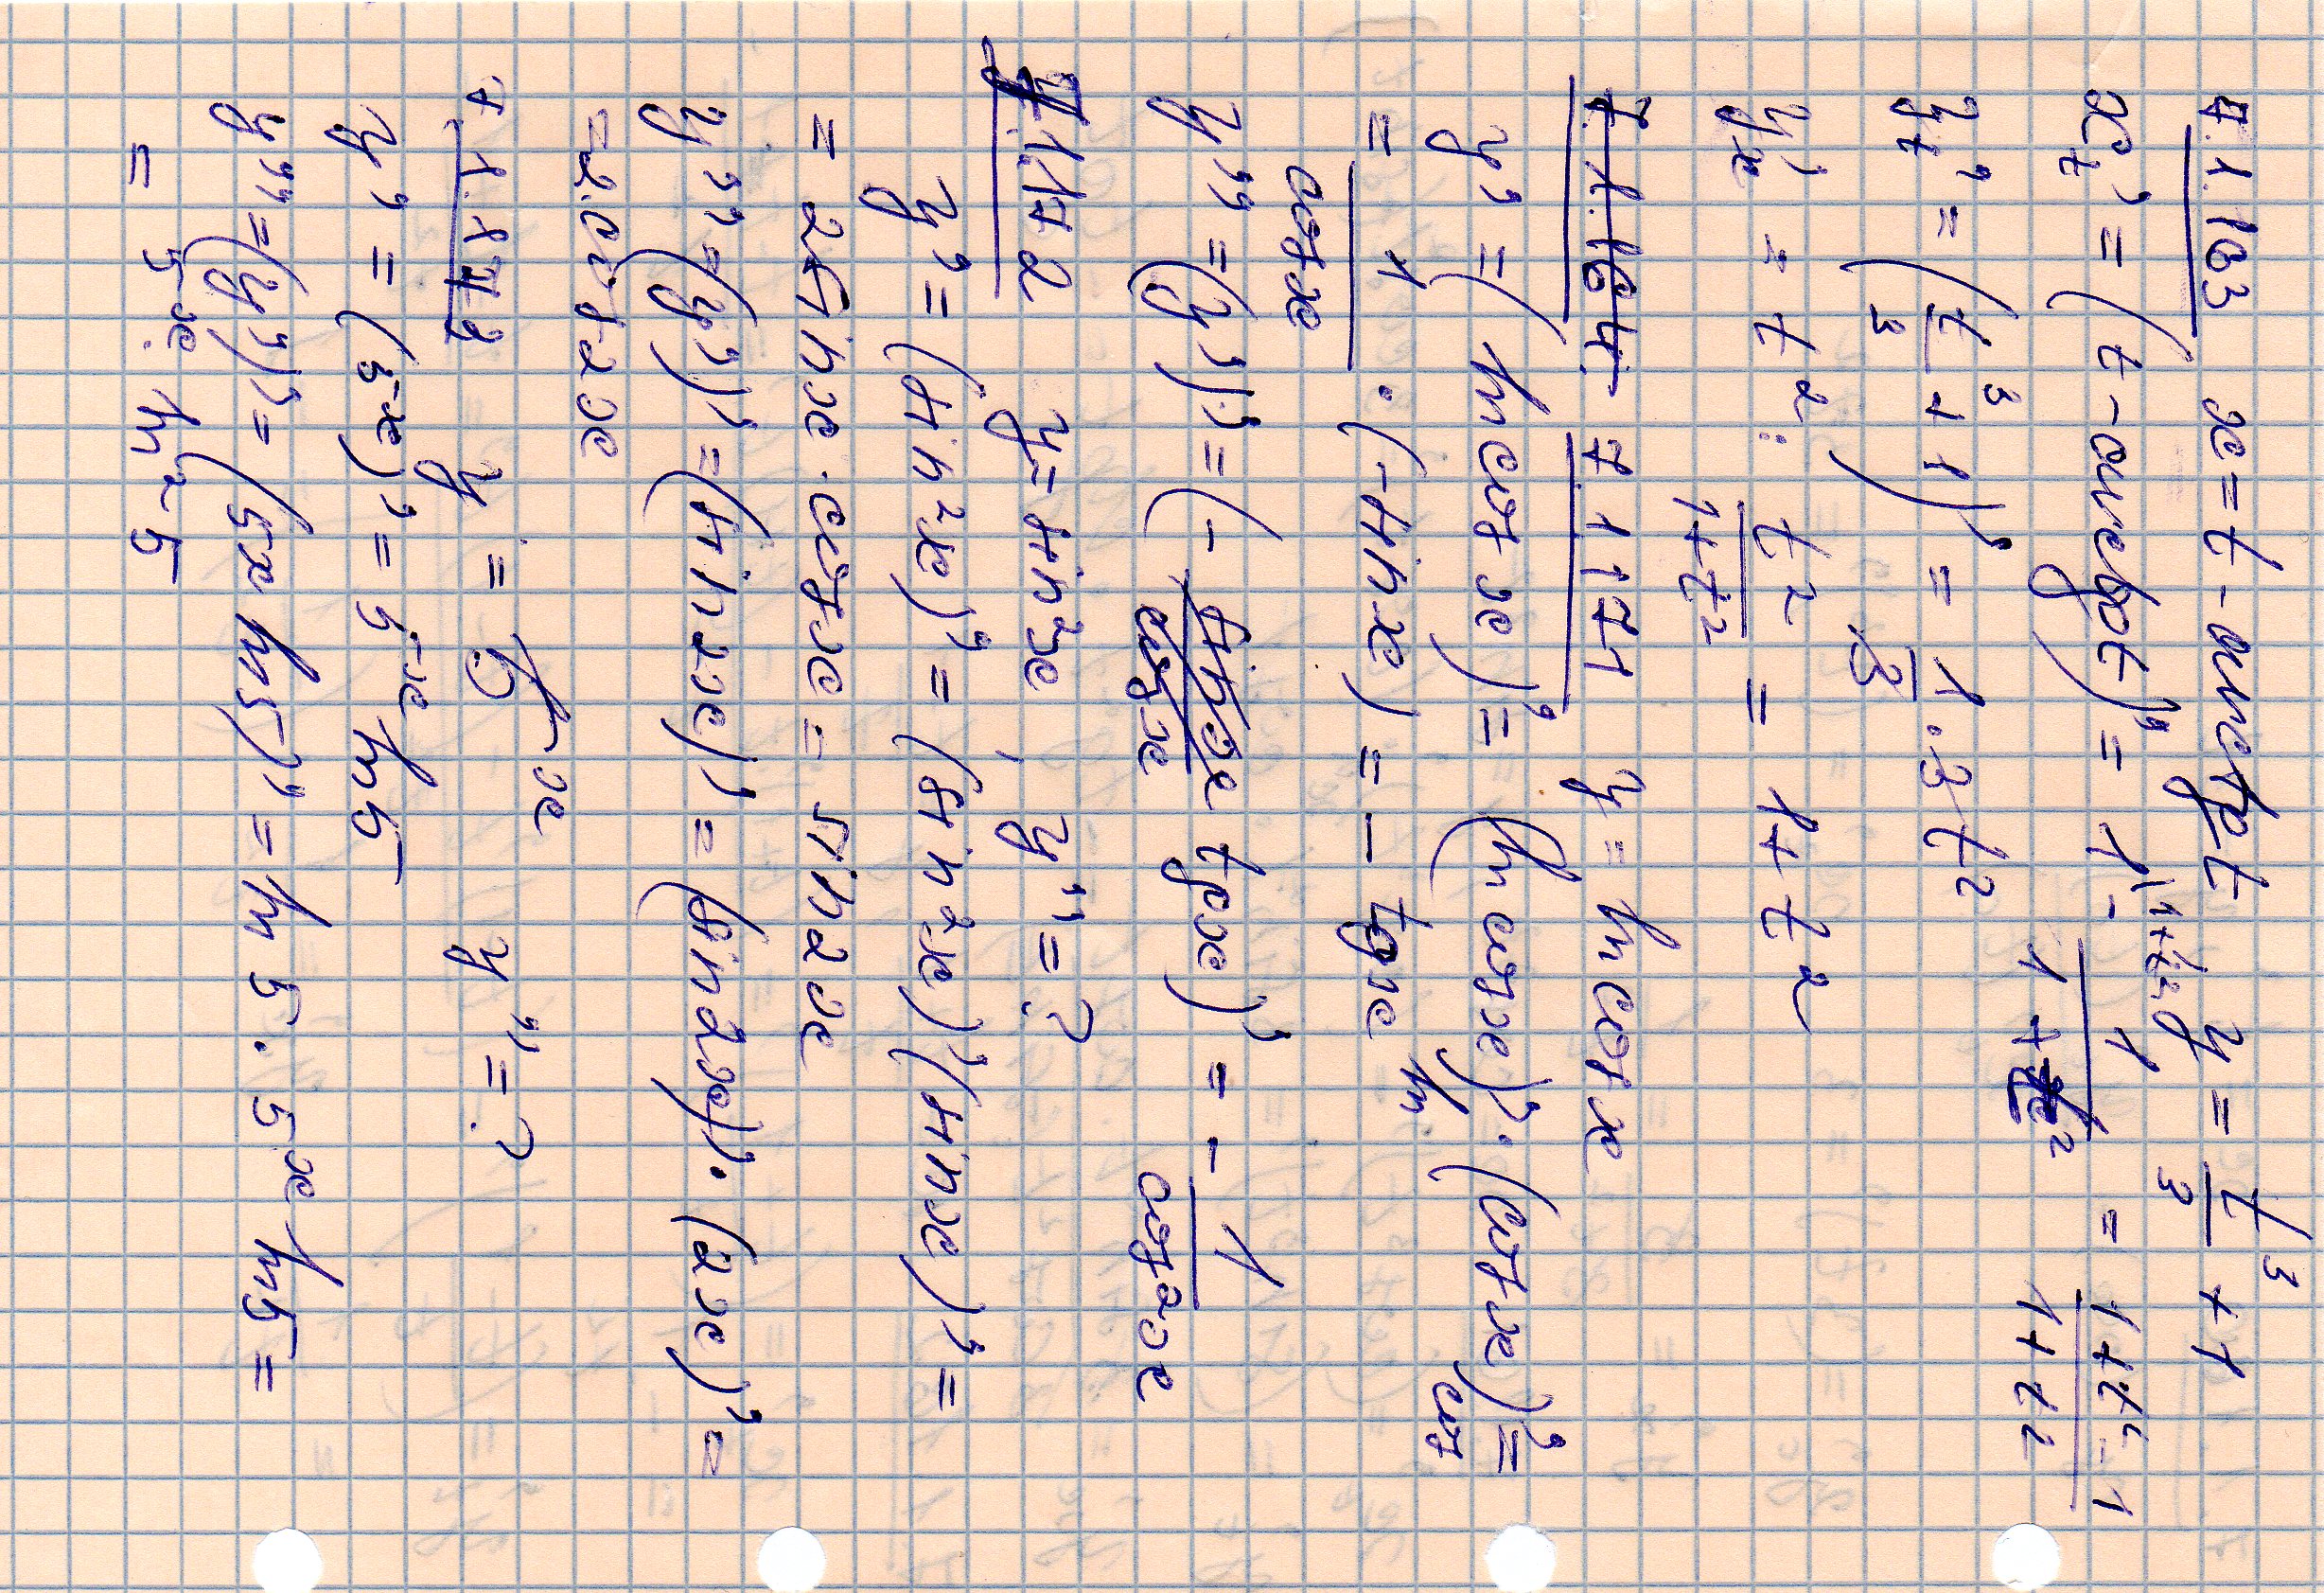 7.1.163 x = t - arctg t, y = t³/3 + 1
x't = (t - arctg t)' = 1\1+t² - 1/(1+t²) = (1+t²-1)/(1+t²)
y't = (t³/3 + 1)' = 1/3 · 3t²
y'x = t² : t²/(1+t²) = 1+t²
7.1.164. 7.1.171 y = ln cos x
y' = (ln cos x)' = (ln cos x)'ln · (cos x)'cos =
= 1/cos x · (-sin x) = - tg x
y'' = (y')' = (- sin x/cos x tg x)' = - 1/cos²x
7.1.172 y = sin²x, y'' = ?
y' = (sin²x)' = (sin²x)'(sin x)' =
= 2 sin x · cos x = sin 2x
y'' = (y')' = (sin 2x)' = (sin 2x)' · (2x)' =
= 2·cos 2x
7.1.173 y = 5ˣ y'' = ?
y' = (5ˣ)' = 5ˣ ln 5
y'' = (y')' = (5x ln 5)' = ln 5 · 5ˣ ln 5 =
= 5ˣ · ln² 5